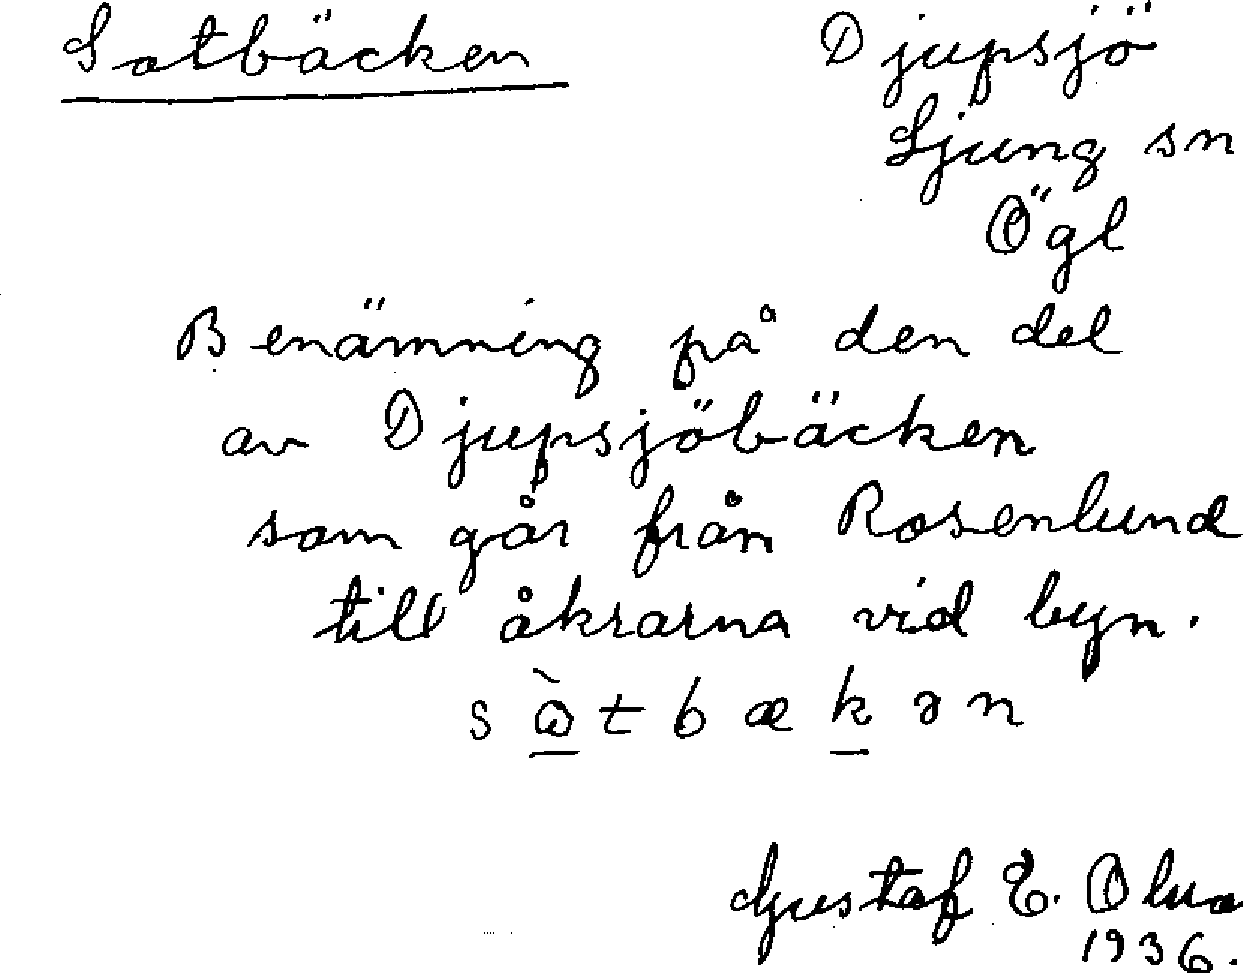 Sotbäcken
Djupsjö
Ljung sn
Ögl
Benämning på den del
av Djupsjöbäcken
som går från Rosenlund
till åkrarna vid byn.
Gustaf E.
1936.